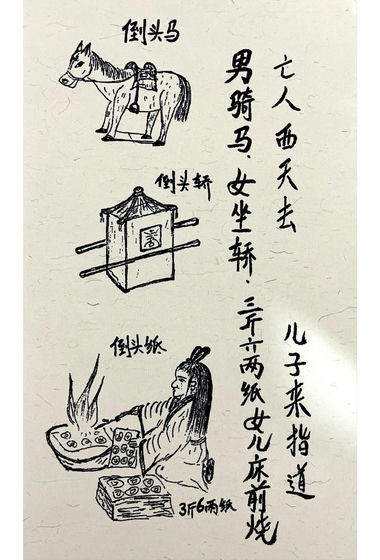 亡人西天去
儿子来指道
男骑马、女坐轿、三斤六两纸女儿床前烧
倒头马
倒头轿
倒头纸
3斤6两纸